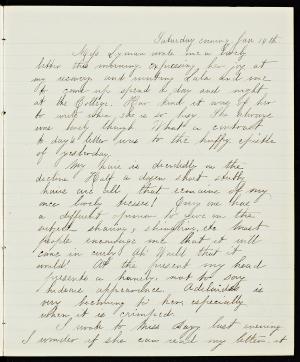 Saturday evening Jan 19th
Miss Lyman wrote me a lovely
letter this morning expressing her joy at
my recovery and inviting Lula and me
to come up spend a day and night
at the College. How kind it was of her
to write when she is so busy. She always
was lovely though. What a contrast
to day's letter was to the huffy epistle
of yesterday.
My hair is decidedly on the
decline. Half a dozen short stubby
hairs are all that remains of my
once lovely tresses! Every one has
a different opinion to give on the
subject shaving, shingling, etc. Most
people encourage me that it will
come in curly. Ah! Would that it
would! At the present my head
presents a homely, not to say
hideous appearance. Adelaide's is
very becoming to her, especially
when it is crimped.
I wrote to Miss Lizzy last evening
I wonder if she can read my letter, it